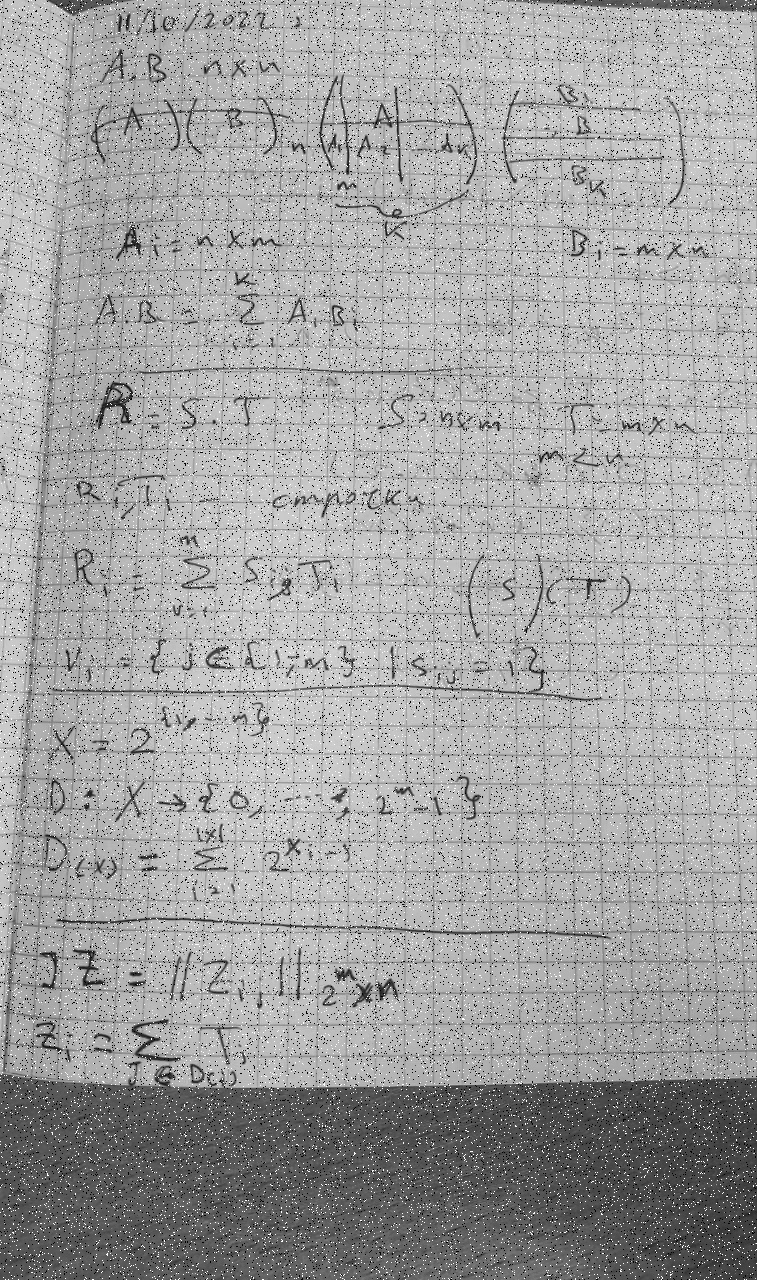 11/10/2022
A.B n x n
( A ) ( B ) n ( A A₁ A₂ ... Aₖ ) ( B₁ B Bₖ )
m
K
Aᵢ = n x m Bᵢ = m x n
A.B = K ∑ i=1 Aᵢ Bᵢ
R = S.T S = n x m T = m x n
m < n
Rᵢ, Tᵢ - строчки
Rᵢ = m ∑ Sᵢⱼ Tⱼ ( S ) ( T )
Vᵢ = { j ∈ {1,..m} | Sᵢⱼ = 1 }
X = 2 {1,..m}
D : X → {0, ..., 2ᵐ-1}
D(x) = |x| ∑ i=1 2 xᵢ-1
∃ Z = ||Zᵢⱼ|| 2ᵐxn
Zᵢ = ∑ Tⱼ
j ∈ D(i)